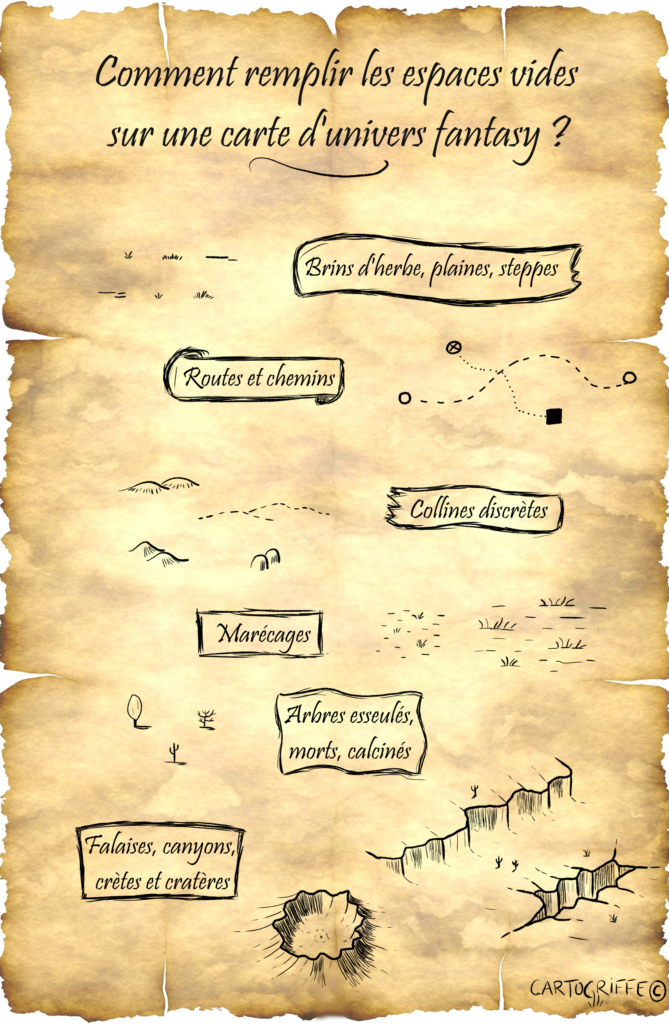 Comment remplir les espaces vides
sur une carte d'univers fantasy ?
Brins d'herbe, plaines, steppes
Routes et chemins
Collines discrètes
Marécages
Arbres esseulés,
morts, calcinés
Falaises, canyons,
crètes et cratères
CARTOGRIFFE ©